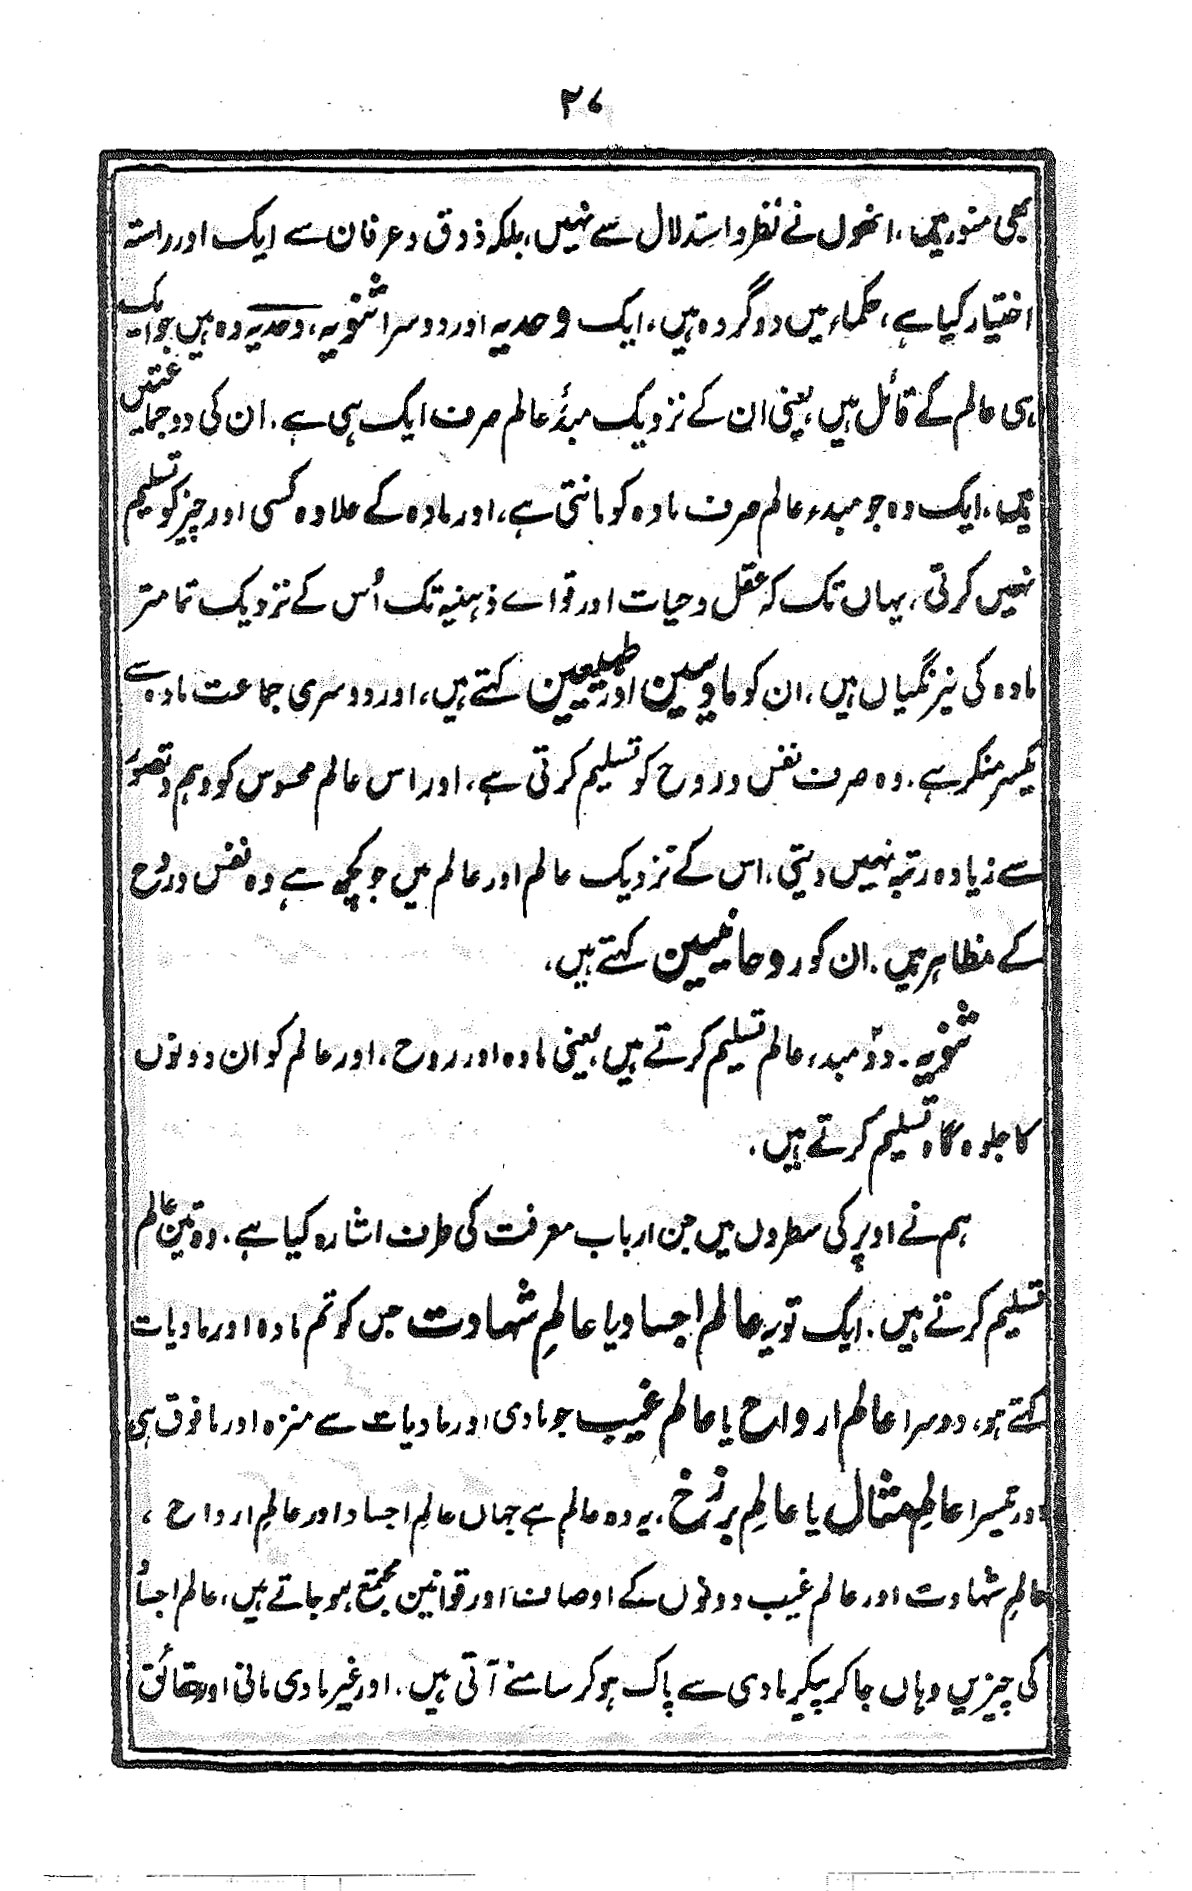 ۲۷
بھی منور ہیں، انھوں نے نظر و استدلال سے نہیں، بلکہ ذوق و عرفان سے ایک اور راستہ
اختیار کیا ہے، حکماء میں دو گروہ ہیں، ایک وحدیہ اور دوسرا ثنویہ، وحدیہ وہ ہیں جو ایک
ہی عالم کے قائل ہیں، یعنی ان کے نزدیک مبدأ عالم صرف ایک ہی ہے. ان کی دو جماعتیں
ہیں، ایک وہ جو مبدء عالم صرف مادہ کو مانتی ہے، اور مادہ کے علاوہ کسی اور چیز کو تسلیم
نہیں کرتی، یہاں تک کہ عقل و حیات اور قوائے ذہنیہ تک اُس کے نزدیک تمامتر
مادہ کی نیرنگیاں ہیں، ان کو مادیین اور طبیعیین کہتے ہیں، اور دوسری جماعت مادہ سے
یکسر منکر ہے. وہ صرف نفس و روح کو تسلیم کرتی ہے، اور اس عالم محسوس کو وہم و تصور
سے زیادہ رتبہ نہیں دیتی، اس کے نزدیک عالم اور عالم میں جو کچھ ہے وہ نفس و روح
کے مظاہر ہیں. ان کو روحانیین کہتے ہیں،
ثنویہ. دو مبدء عالم تسلیم کرتے ہیں یعنی مادہ اور روح، اور عالم کو ان دونوں
کا جلوہ گاہ تسلیم کرتے ہیں.
ہم نے اوپر کی سطروں میں جن ارباب معرفت کی طرف اشارہ کیا ہے. وہ تین عالم
تسلیم کرتے ہیں. ایک تو یہ عالم اجساد یا عالمِ شہادت جس کو تم مادہ اور مادیات
کہتے ہو، دوسرا عالم ارواح یا عالم غیب جو مادی اور مادیات سے منزہ اور مافوق ہی
اور تیسرا عالمِ مثال یا عالمِ برزخ، یہ وہ عالم ہے جہاں عالمِ اجساد اور عالمِ ارواح،
عالمِ شہادت اور عالم غیب دونوں کے اوصاف اور قوانین مجتمع ہو جاتے ہیں، عالم اجساد
کی چیزیں وہاں جا کر پیکر مادی سے پاک ہو کر سامنے آتی ہیں. اور غیر مادی مانی اور حقائق